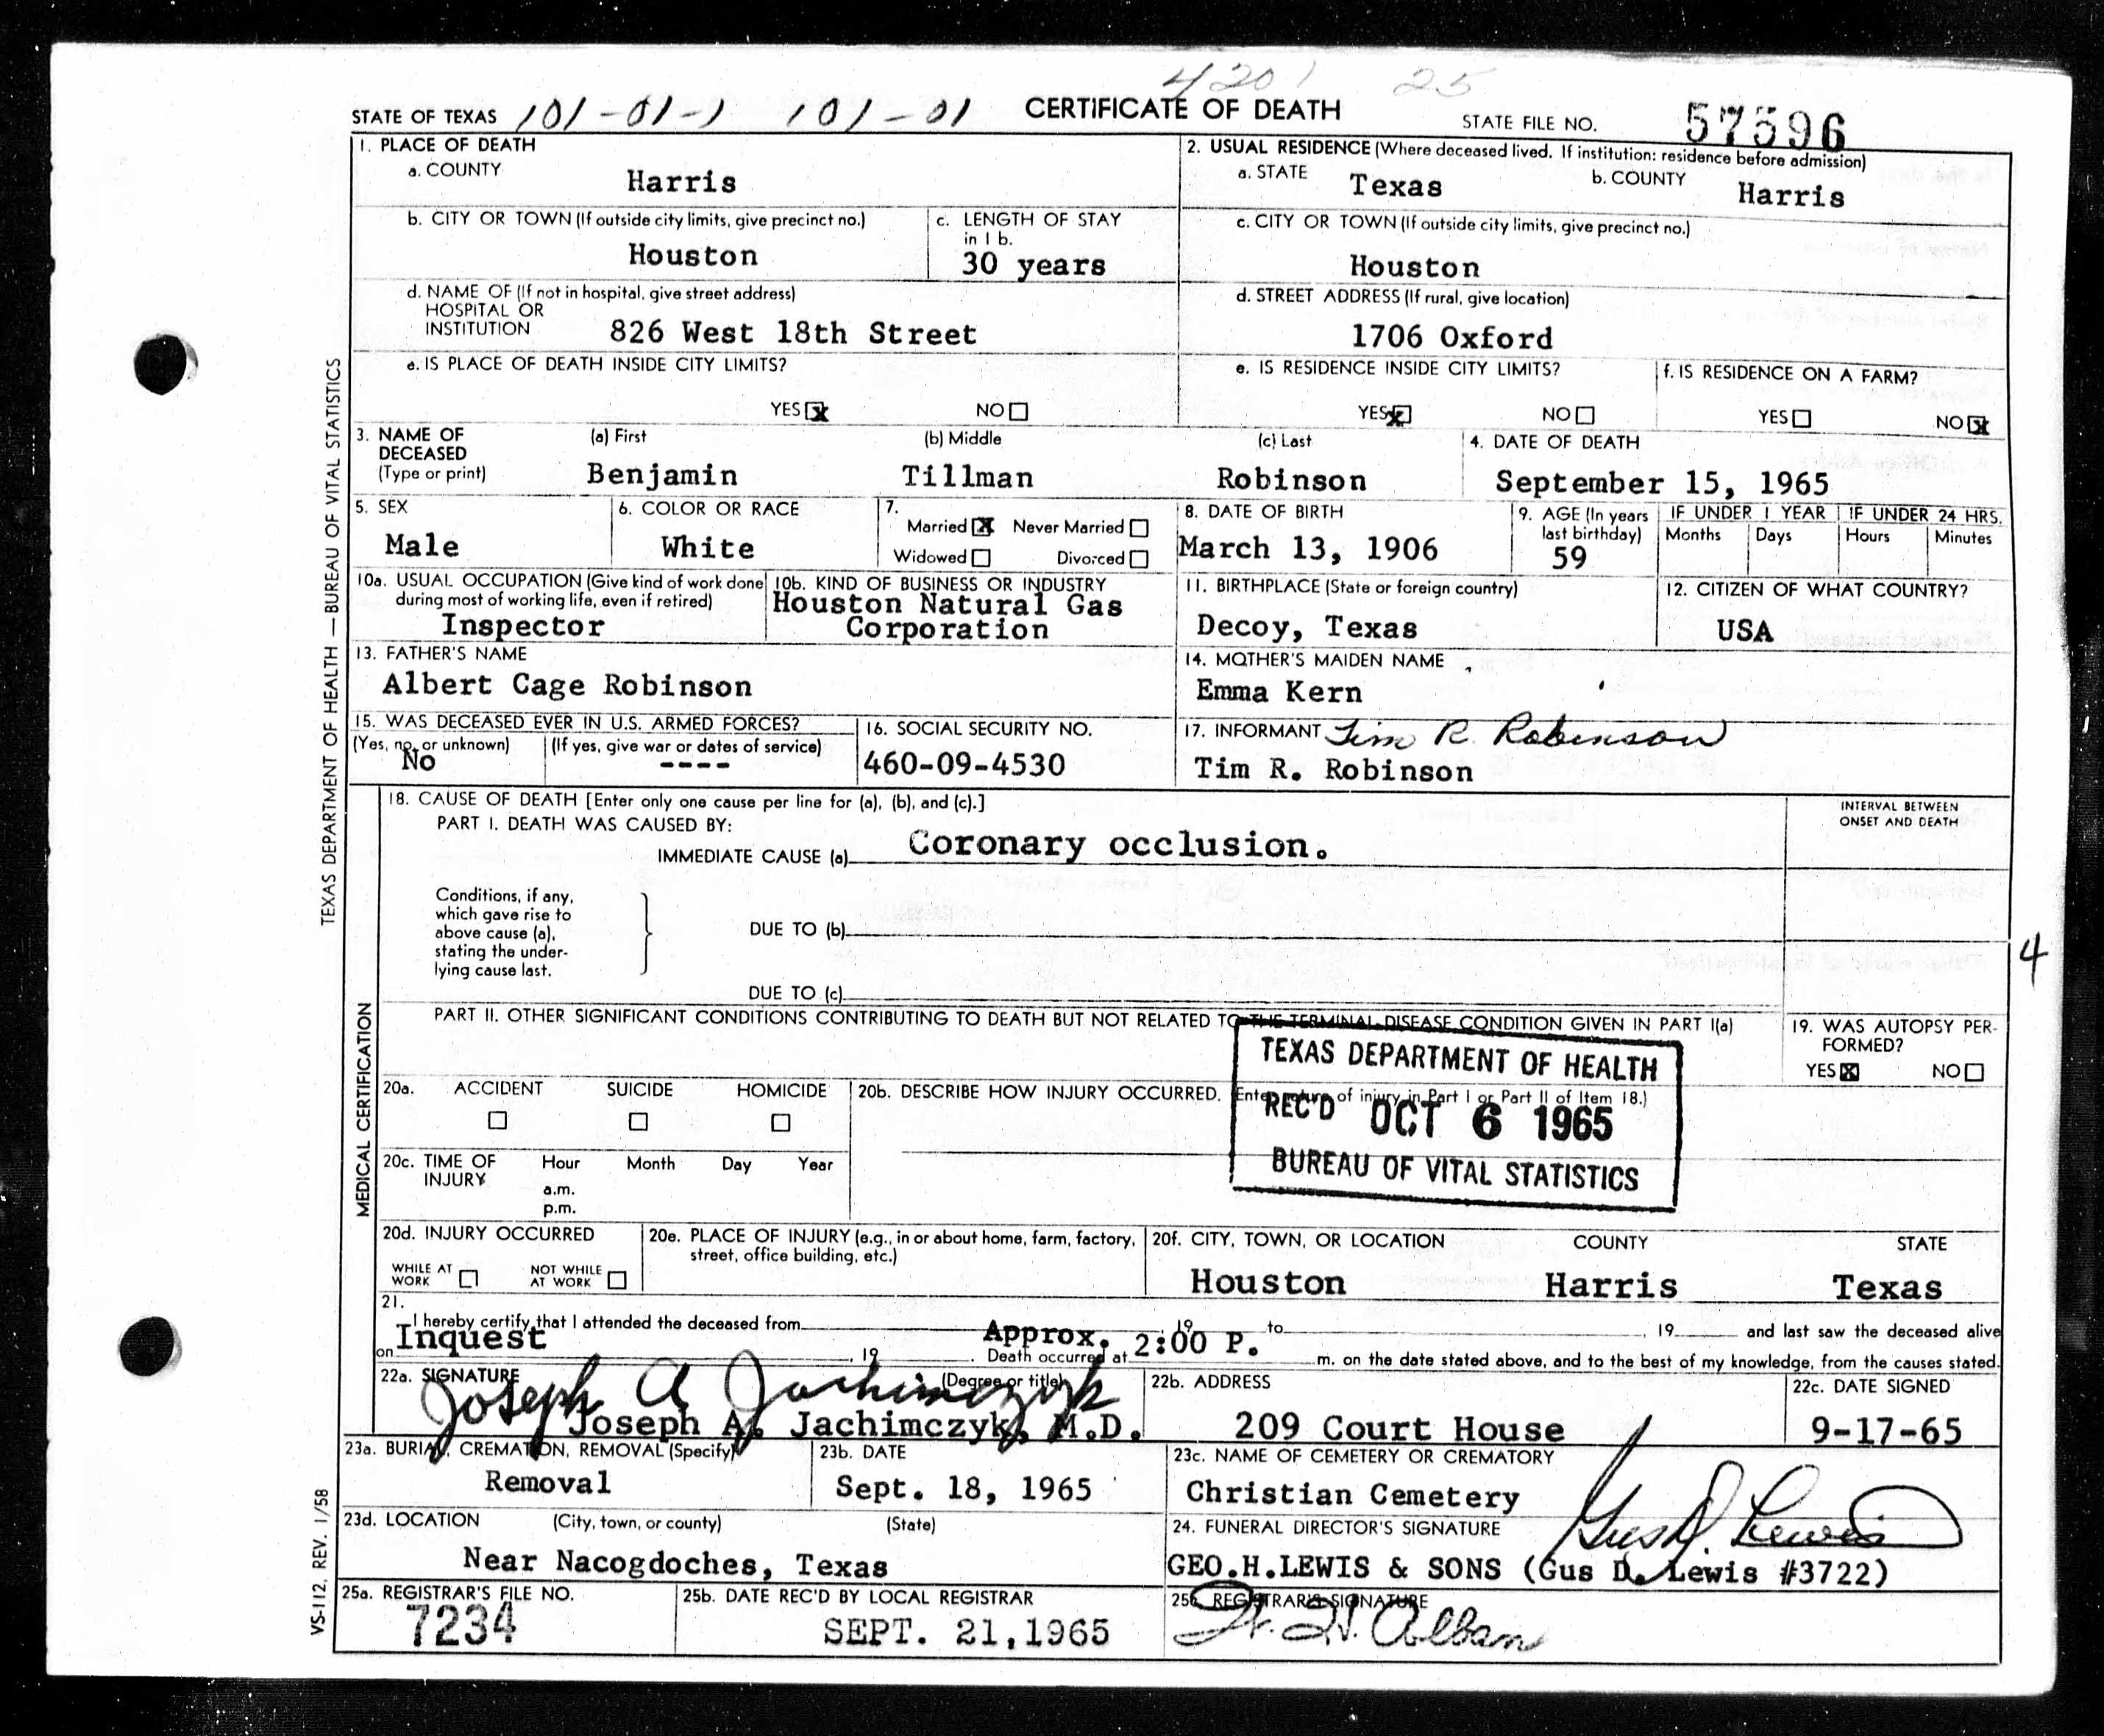 4201 25
STATE OF TEXAS 101-01-1 101-01 CERTIFICATE OF DEATH STATE FILE NO. 57596
1. PLACE OF DEATH
a. COUNTY
Harris
2. USUAL RESIDENCE (Where deceased lived. If institution: residence before admission)
a. STATE Texas b. COUNTY Harris
b. CITY OR TOWN (If outside city limits, give precinct no.)
Houston
c. LENGTH OF STAY
in 1 b.
30 years
c. CITY OR TOWN (If outside city limits, give precinct no.)
Houston
d. NAME OF (If not in hospital, give street address)
HOSPITAL OR
INSTITUTION 826 West 18th Street
d. STREET ADDRESS (If rural, give location)
1706 Oxford
e. IS PLACE OF DEATH INSIDE CITY LIMITS?
YES X NO
e. IS RESIDENCE INSIDE CITY LIMITS?
YES X NO
f. IS RESIDENCE ON A FARM?
YES NO X
3. NAME OF
DECEASED
(Type or print)
(a) First (b) Middle (c) Last
Benjamin Tillman Robinson
4. DATE OF DEATH
September 15, 1965
5. SEX
Male
6. COLOR OR RACE
White
7.
Married X Never Married
Widowed Divorced
8. DATE OF BIRTH
March 13, 1906
9. AGE (In years
last birthday)
59
IF UNDER 1 YEAR IF UNDER 24 HRS.
Months Days Hours Minutes
10a. USUAL OCCUPATION (Give kind of work done
during most of working life, even if retired)
Inspector
10b. KIND OF BUSINESS OR INDUSTRY
Houston Natural Gas
Corporation
11. BIRTHPLACE (State or foreign country)
Decoy, Texas
12. CITIZEN OF WHAT COUNTRY?
USA
13. FATHER'S NAME
Albert Cage Robinson
14. MOTHER'S MAIDEN NAME
Emma Kern
15. WAS DECEASED EVER IN U.S. ARMED FORCES?
(Yes, no, or unknown) (If yes, give war or dates of service)
No ----
16. SOCIAL SECURITY NO.
460-09-4530
17. INFORMANT Tim R. Robinson
Tim R. Robinson
18. CAUSE OF DEATH [Enter only one cause per line for (a), (b), and (c).]
PART I. DEATH WAS CAUSED BY:
IMMEDIATE CAUSE (a) Coronary occlusion.
INTERVAL BETWEEN
ONSET AND DEATH
Conditions, if any,
which gave rise to
above cause (a),
stating the under-
lying cause last.
DUE TO (b)
DUE TO (c)
4
PART II. OTHER SIGNIFICANT CONDITIONS CONTRIBUTING TO DEATH BUT NOT RELATED TO THE TERMINAL DISEASE CONDITION GIVEN IN PART I(a)
19. WAS AUTOPSY PER-
FORMED?
YES X NO
TEXAS DEPARTMENT OF HEALTH
REC'D OCT 6 1965
BUREAU OF VITAL STATISTICS
20a. ACCIDENT SUICIDE HOMICIDE
20b. DESCRIBE HOW INJURY OCCURRED. (Enter nature of injury in Part I or Part II of Item 18.)
20c. TIME OF
INJURY
Hour Month Day Year
a.m.
p.m.
20d. INJURY OCCURRED
WHILE AT
WORK
NOT WHILE
AT WORK
20e. PLACE OF INJURY (e.g., in or about home, farm, factory,
street, office building, etc.)
20f. CITY, TOWN, OR LOCATION COUNTY STATE
Houston Harris Texas
21.
I hereby certify that I attended the deceased from , 19 to , 19 and last saw the deceased alive
on Inquest , 19 . Death occurred at Approx. 2:00 P. m. on the date stated above, and to the best of my knowledge, from the causes stated.
22a. SIGNATURE (Degree or title)
Joseph A Jachimczyk
Joseph A. Jachimczyk, M.D.
22b. ADDRESS
209 Court House
22c. DATE SIGNED
9-17-65
23a. BURIAL, CREMATION, REMOVAL (Specify)
Removal
23b. DATE
Sept. 18, 1965
23c. NAME OF CEMETERY OR CREMATORY
Christian Cemetery
23d. LOCATION (City, town, or county) (State)
Near Nacogdoches, Texas
24. FUNERAL DIRECTOR'S SIGNATURE
Gus D. Lewis
GEO.H.LEWIS & SONS (Gus D. Lewis #3722)
25a. REGISTRAR'S FILE NO.
7234
25b. DATE REC'D BY LOCAL REGISTRAR
SEPT. 21,1965
25c. REGISTRAR'S SIGNATURE
TEXAS DEPARTMENT OF HEALTH — BUREAU OF VITAL STATISTICS
MEDICAL CERTIFICATION
VS-112, REV. 1/58